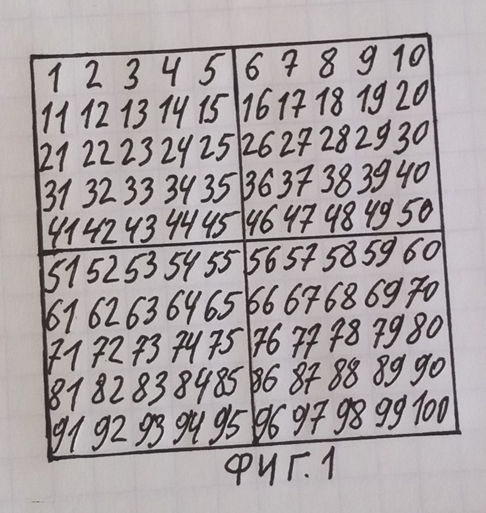 1 2 3 4 5 6 7 8 9 10
11 12 13 14 15 16 17 18 19 20
21 22 23 24 25 26 27 28 29 30
31 32 33 34 35 36 37 38 39 40
41 42 43 44 45 46 47 48 49 50
51 52 53 54 55 56 57 58 59 60
61 62 63 64 65 66 67 68 69 70
71 72 73 74 75 76 77 78 79 80
81 82 83 84 85 86 87 88 89 90
91 92 93 94 95 96 97 98 99 100
ФИГ.1